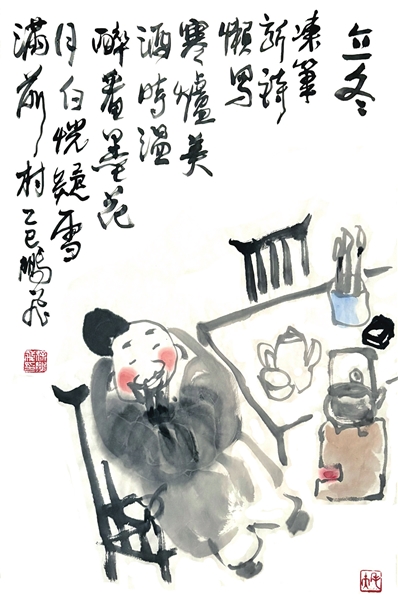 立冬
凍筆
新詩
懶寫
寒爐美
酒時溫
醉看墨花
月白恍疑雪
滿前村 乙巳鵬飛